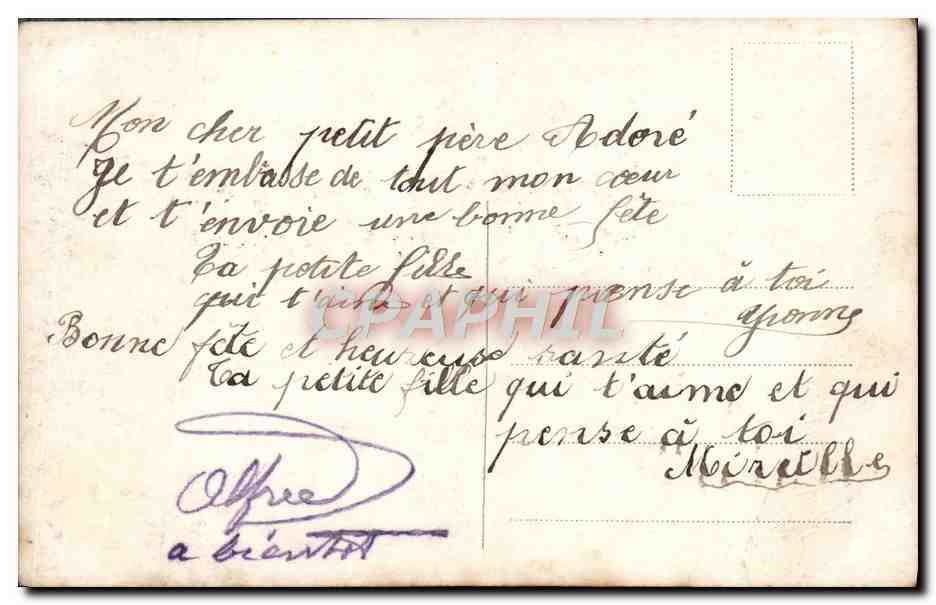 Mon cher petit père Adoré
Je t'embasse de tout mon cœur
et t'envoie une bonne fête
Ta petite fille
qui t'aime et qui pense à toi
Yvonne
Bonne fête et heureuse santé
Ta petite fille qui t'aime et qui
pense à toi
Mireille
Alfred
a bientot
CPAPHIL